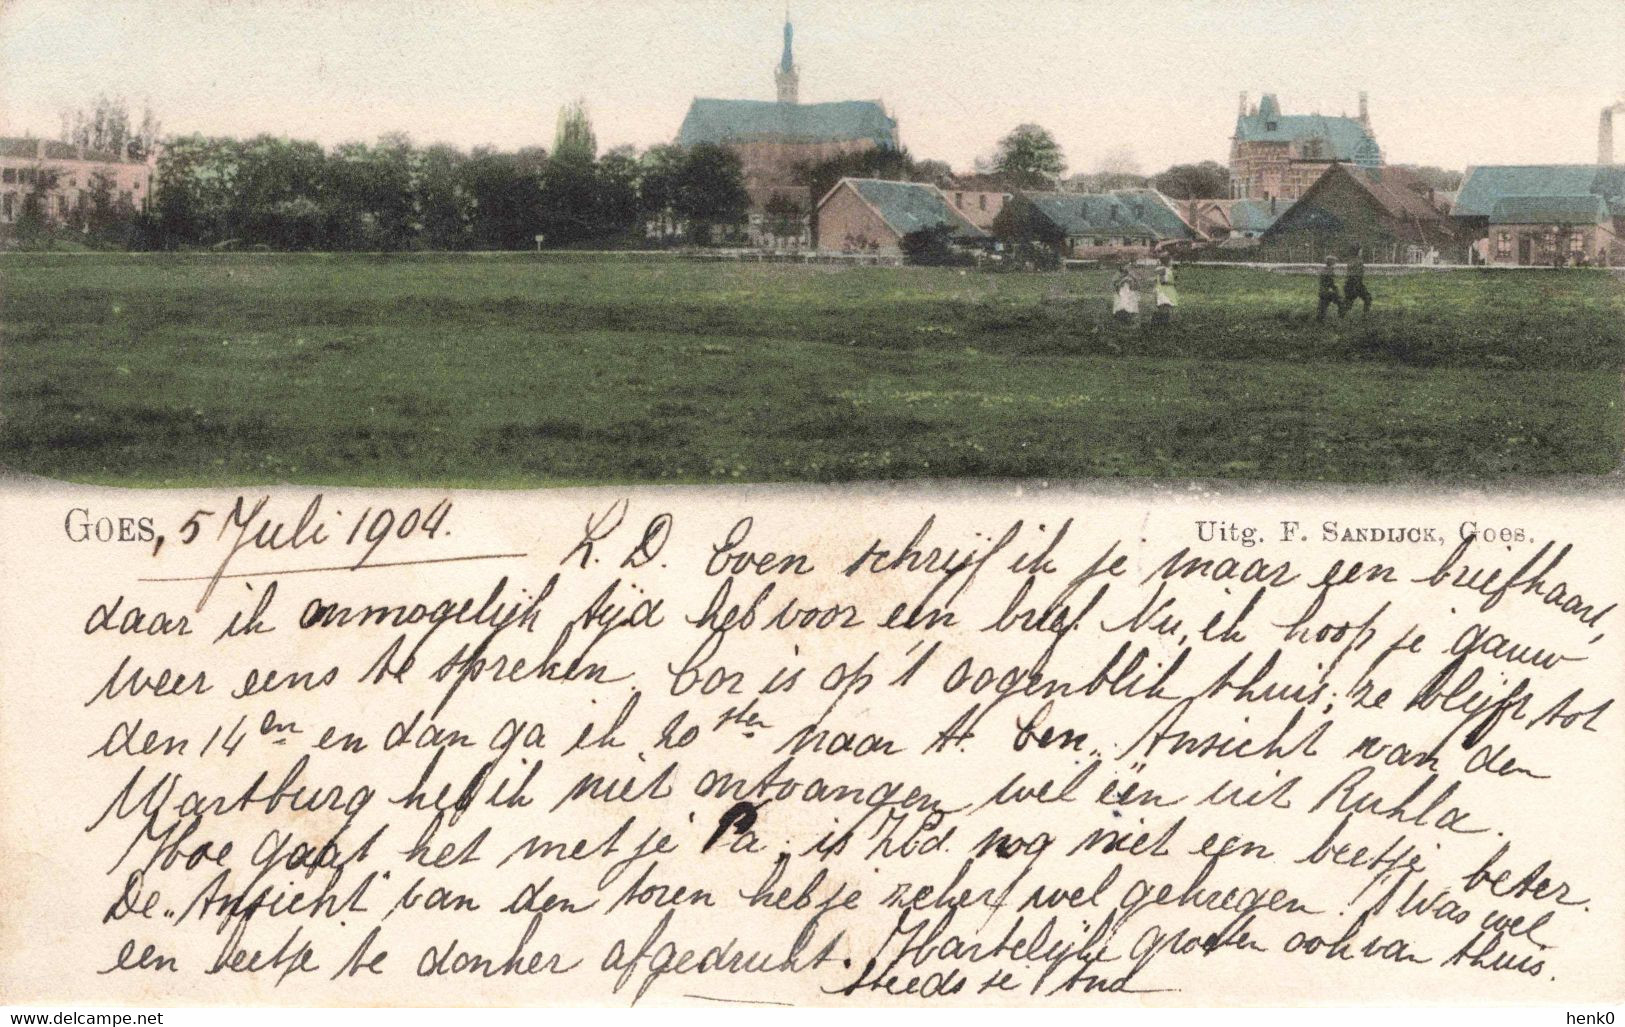 GOES, 5 Juli 1904.
Uitg. F. SANDIJCK, Goes.
L. D. Even schrijf ik je maar een briefkaart,
daar ik onmogelijk tijd heb voor een brief. Nu, ik hoop je gauw
weer eens te spreken. Cor is op 't oogenblik thuis; ze blijft tot
den 14en en dan ga ik 20sten naar A. Een „Ansicht van den
Wartburg" heb ik niet ontvangen wel ëën uit Ruhla.
Hoe gaat het met je Pa, is ZEd. nog niet een beetje beter.
De „Ansicht" van den toren heb je zeker wel gekregen. 't Was wel
een beetje te donker afgedrukt. Hartelijke groeten ook van thuis.
steeds je
www.delcampe.net
henk0